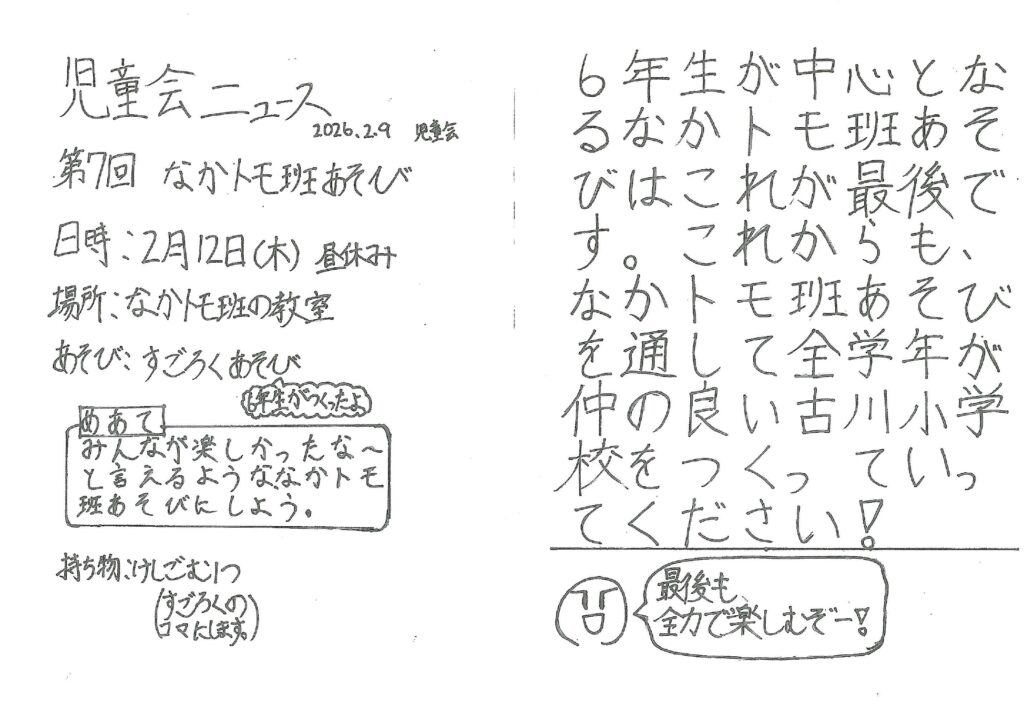 児童会ニュース
2026.2.9 児童会
第7回 なかトモ班あそび
日時:2月12日(木) 昼休み
場所:なかトモ班の教室
あそび:すごろくあそび
6年生がつくったよ
めあて
みんなが楽しかったな〜
と言えるようななかトモ
班あそびにしよう。
持ち物:けしごむ1つ
(すごろくの
コマにします。)
6年生が中心とな
るなかトモ班あそ
びはこれが最後で
す。これからも、
なかトモ班あそび
を通して全学年が
仲の良い古川小学
校をつくっていっ
てください!
最後も、
全力で楽しむぞー!